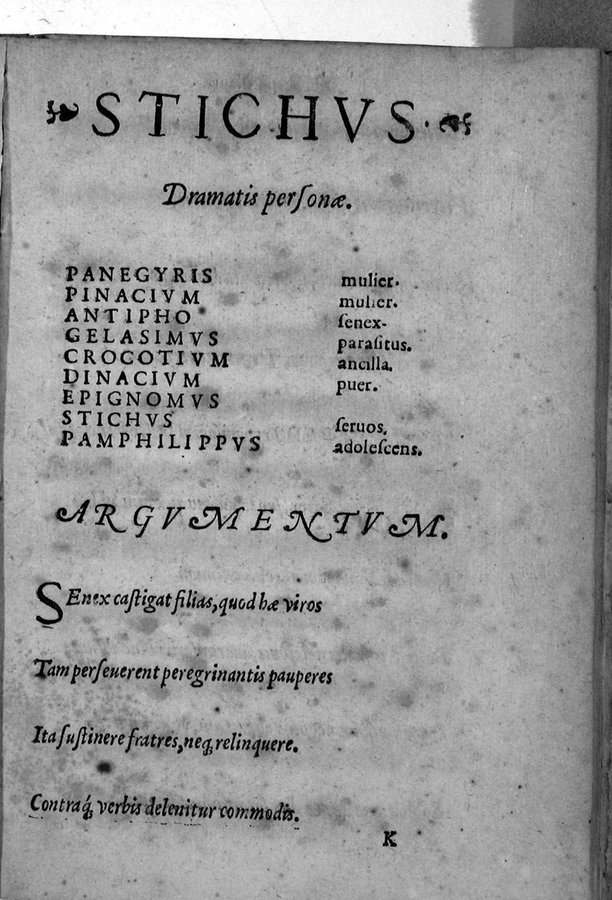 STICHVS.
Dramatis perſonæ.
PANEGYRIS mulier.
PINACIVM mulier.
ANTIPHO ſenex.
GELASIMVS paraſitus.
CROCOTIVM ancilla.
DINACIVM puer.
EPIGNOMVS
STICHVS ſeruos.
PAMPHILIPPVS adoleſcens.
ARGVMENTVM.
SEnex caſtigat filias, quod hæ viros
Tam perſeuerent peregrinantis pauperes
Ita ſuſtinere fratres, neq; relinquere.
Contraq́; verbis delenitur commodis.
K